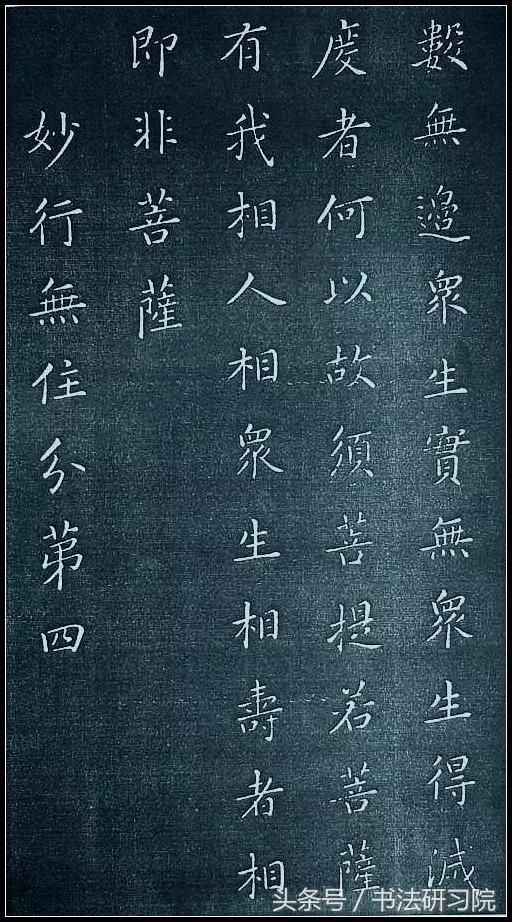 數無邊眾生實無眾生得滅
度者何以故須菩提若菩薩
有我相人相眾生相壽者相
即非菩薩
妙行無住分第四
头条号 / 书法研习院